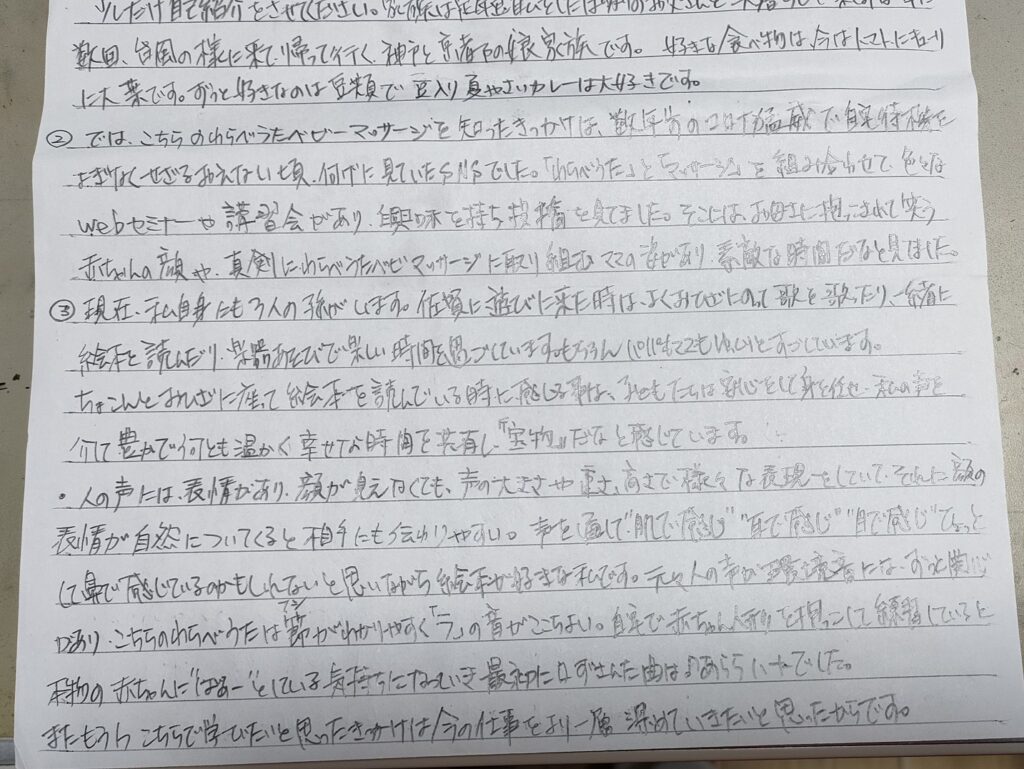 少しだけ自己紹介をさせてください。家族は
数回、台風の様に来て帰って行く、神戸と京都の娘家族です。好きな食べ物は、今はトマトにキュウリ
に大葉です。ずっと好きなのは豆類で豆入り夏やさいカレーは大好きです。
② では、こちらのわらべうたベビーマッサージを知ったきっかけは、数年前のコロナ猛威で自宅待機を
よぎなくせざるおえない頃、何げに見ていたSNSでした。「わらべうた」と「マッサージ」を組み合わせて、色々な
webセミナーや講習会があり、興味を持ち投稿を見てました。そこには、お母さんに抱っこされて笑う
赤ちゃんの顔や、真剣にわらべうたベビーマッサージに取り組むママの姿があり、素敵な時間だなと見ました。
③ 現在、私自身にも3人の孫がいます。佐賀に遊びに来た時は、よくおひざにのって歌を歌ったり、一緒に
絵本を読んだり、楽器あそびで楽しい時間を過ごしています。もちろん
ちょこんとおひざに座って絵本を読んでいる時に感じる事は、子どもたちは安心をして身を任せ、私の声を
介して豊かで何とも温かく幸せな時間を共有し『宝物』だなと感じています。
・人の声には、表情があり、顔が見えなくても、声の大きさや重さ、高さで様々な表現をしていて、それに顔の
表情が自然についてくると相手にも伝わりやすい。声を通して"肌で感じ""耳で感じ""目で感じ"ひょっと
して鼻で感じているのかもしれないと思いながら絵本が好きな私です。元々人の声や環境音には、ずっと関心
があり、こちらのわらべうたは節(フシ)がわかりやすく「ラ」の音がここちよい。自宅で赤ちゃん人形を抱っこして練習していると
本物の赤ちゃんに"ばぁー"としている気持ちになっていき最初に口ずさんだ曲は♪あららでした。
またもう1つこちらで学びたいと思ったきっかけは、今の仕事をより一層深めていきたいと思ったからです。